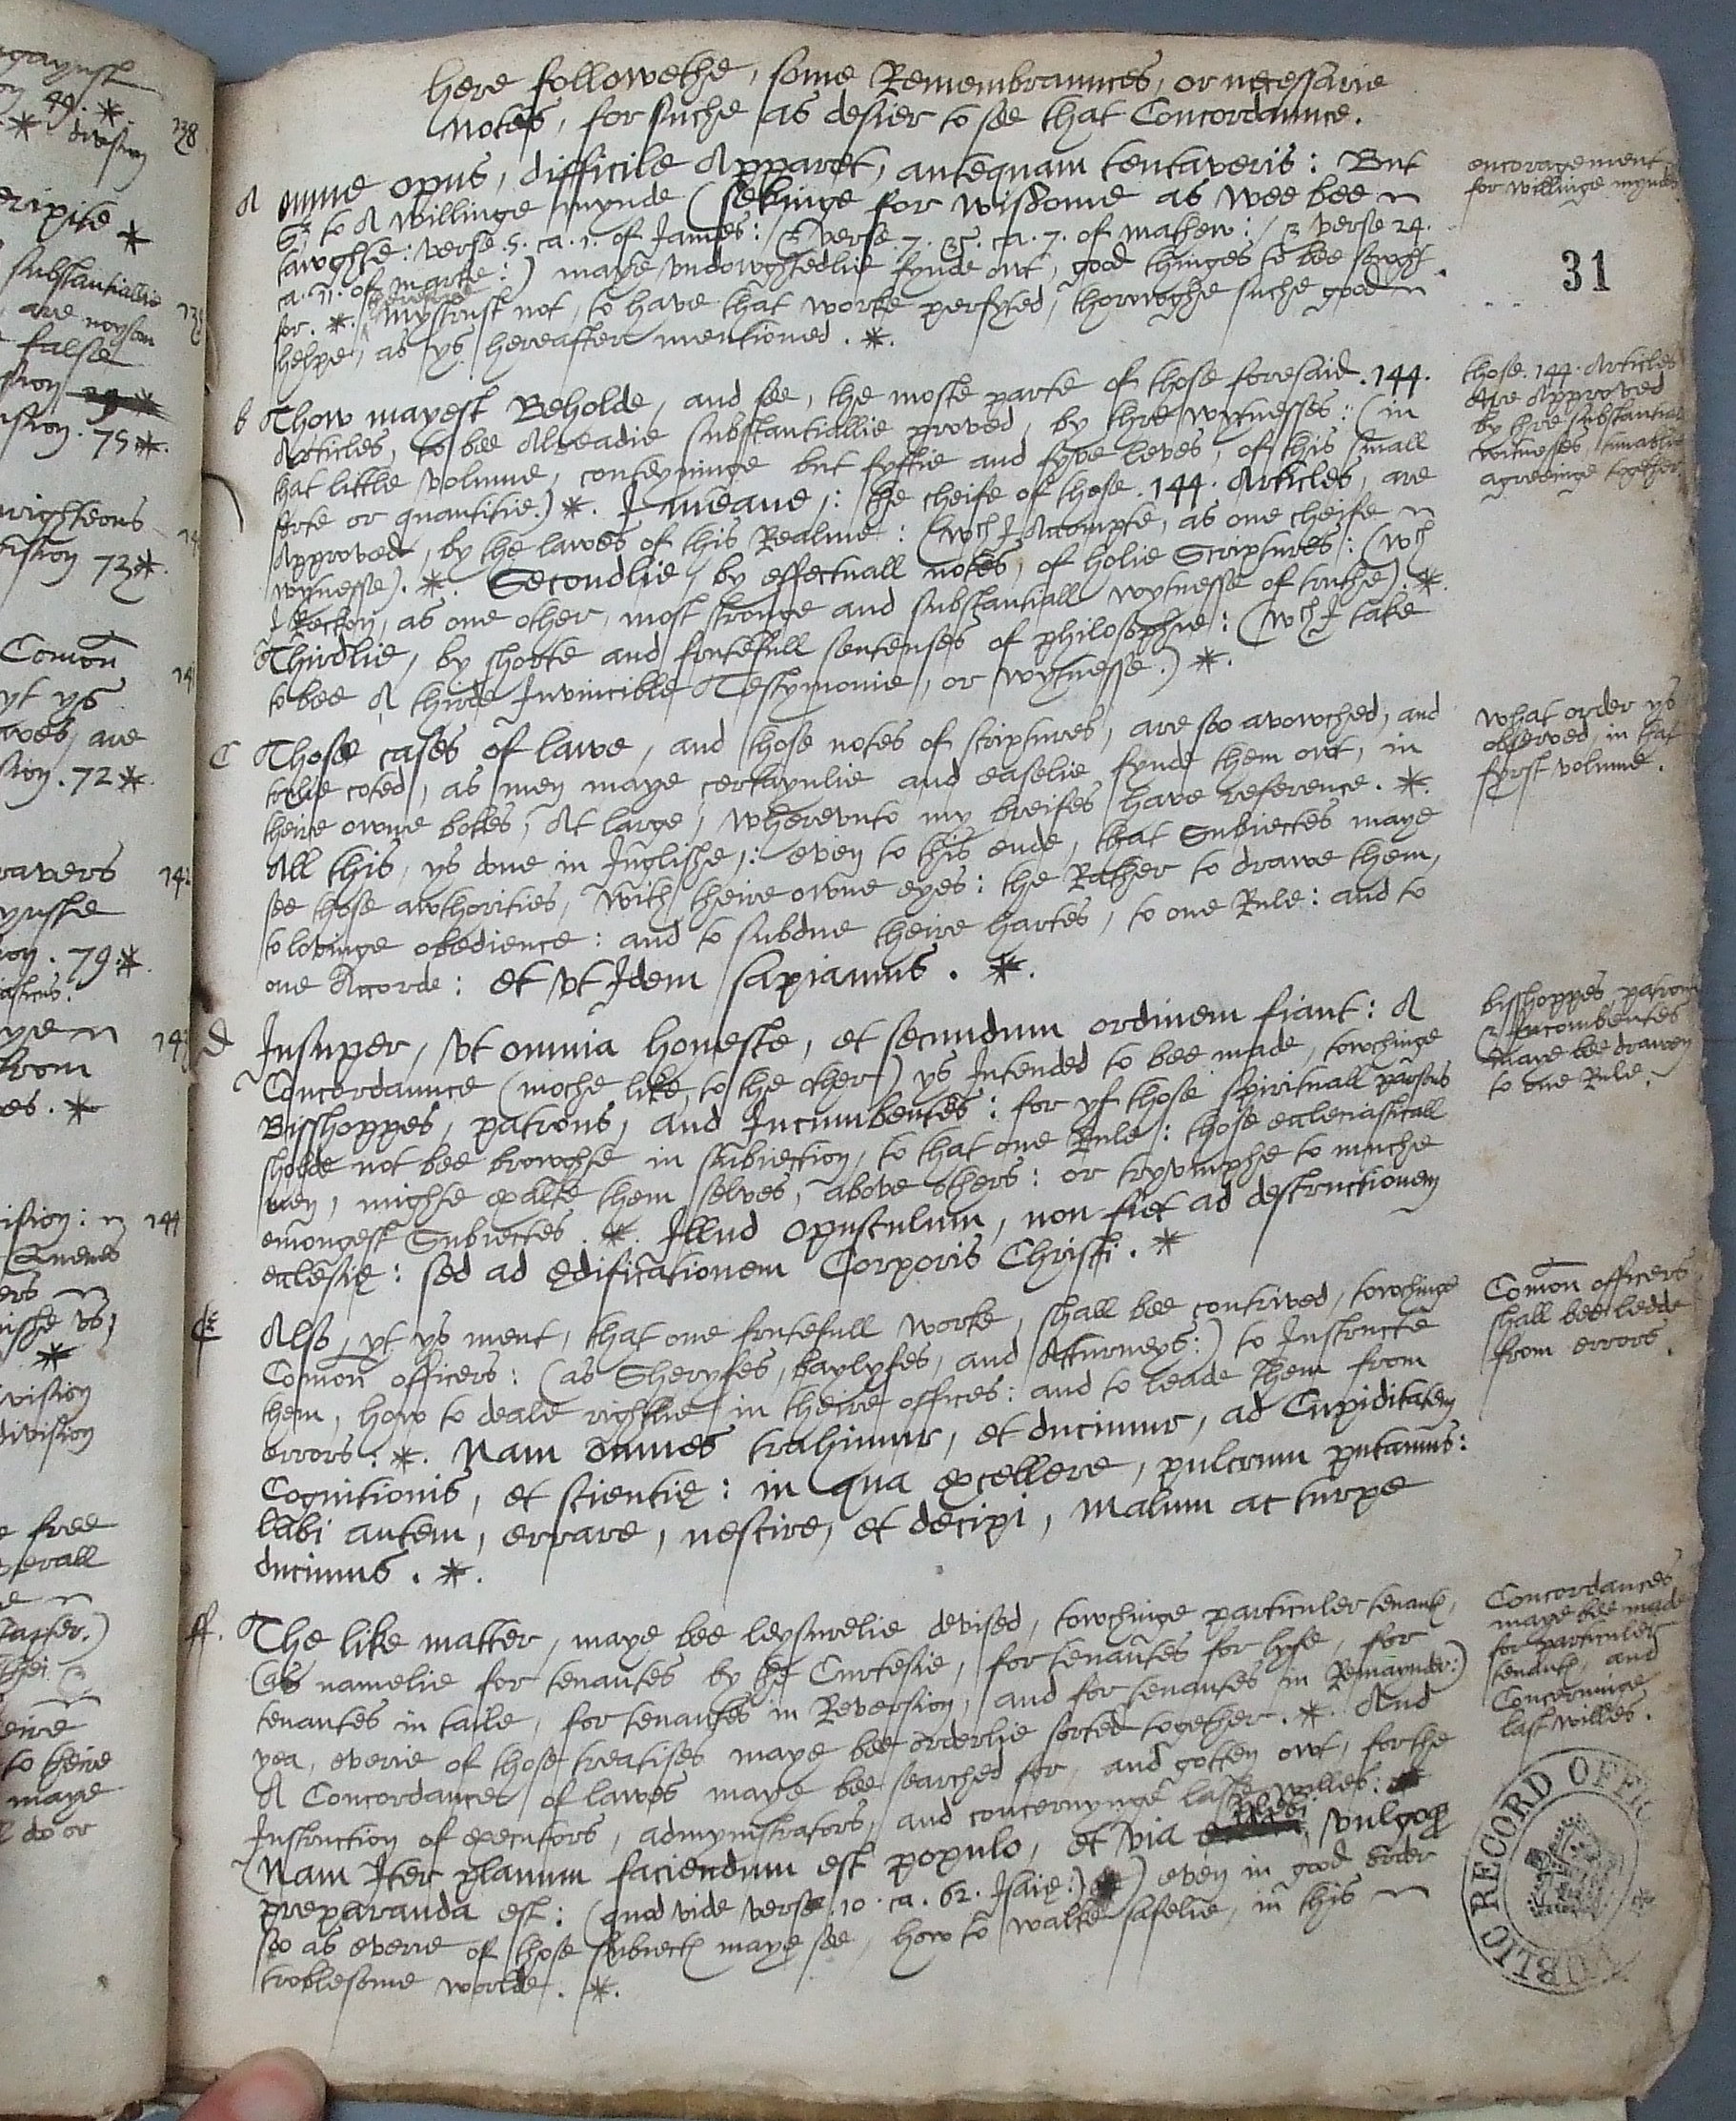 here followethe, some Remembraunces, or necessarie
notes, for suche as desier to see that Concordaunce.
A omne opus, difficile Apparet, antequam tentaveris: But
to A willinge mynde (sekinge for wisdome as wee bee
tawghte: verse. 5. ca. 1. of James: & verse. 7. ca. 7. of mathew: / & verse 24.
ca. 11. of marke:) maye vndowghtedlie fynde owt, good thinges to bee sowght
for. *. therefore mystrust not, to have that worke perfyted, thorowghe suche good
helpe, as ys hereafter mentioned. *.
encoragement
for willinge myndes
31
b Thow mayest Beholde, and see, the moste parte of those foresaid. 144.
Articles, to bee Alreadie substantiallie proved, by thre wytnesses: (in
that little volume, conteyninge but fyftie and fyve leves, of this small
sorte or quantitie.) *. I meane,: the cheife of those. 144. Articles, are
Approved, by the lawes of this Realme: (wch I Accompte, as one cheife
wytnesse). *. Secondlie, by effectuall notes, of holie Scriptures: (wch
I Reckon, as one other, most stronge and substantiall wytnesse of truthe). *.
Thirdlie, by shorte and frutefull sentenses of philosophie: (wch I take
to bee A thirde Invincible Testymonie, or wytnesse.) *.
those. 144. Articles
Are Approved
by thre substantiall
witnesses, tunablie
agreeinge together
C Those cases of lawe, and those notes of scriptures, are so avowched, and
trulie coted, as men maye certaynlie and easelie fynde them owt, in
theire owne bokes, At large, wherevnto my breifes have reference. *.
All this, ys done in Inglishe,: even to this ende, that Subiectes maye
see those awthorities, with theire owne eyes: the Rather to drawe them,
to lovinge obedience: and to subdue theire hartes, to one Rule: and to
one Accorde: et vt Idem sapiamus. *.
what order ys
observed, in that
fyrst volume.
d Insuper, vt omnia honeste, et secundum ordinem fiant: A
Concordaunce (moche like, to the other) ys Intended to bee made, towchinge
Bisshoppes, patrons, and Incumbentes: for yf those spirituall parsons
sholde not bee browghte in subiection, to that one Rule: those ecclesiasticall
men, mighte exalte them selves, above others: or tryvmphe to muche
emongest Subiectes. *. Illud opusculum, non fiet ad destructionem
ecclesię: sed ad ędificationem Corporis Christi. *
bisshoppes, patrons
& Incombentes
maye bee drawen
to one Rule.
Also, yt ys ment, that one frutefull worke, shall bee contrived, towchinge
Comon officers: (as Sheryfes, baylyfes, and Atturneys:) to Instructe
them, how to deale rightlie in theire offices: and to leade them from
errors: *. Nam omnes trahimur, et ducimur, ad Cupiditatem
Cognitionis, et scientię: in qua excellere, pulcrum putamus:
labi autem, errare, nescire, et decipi, malum ac turpe
ducimus. *.
Comon officers
shall bee ledde
from errors.
ff. The like matter, maye bee leysurelie devised, towchinge particuler tenantes,
(as namelie for tenantes by the Curtesie, for tenantes for lyfe, for
tenantes in taile, for tenantes in Reversion, and for tenantes in Remaynder:)
yea, everie of those treatises maye bee orderlie sorted together. *. And
A Concordances of lawes maye bee searched for, and gotten owt, for the
Instruction of executors, admynistrators, and concernynge laste willes:
(Nam Iter planum faciendum est populo, et via plebi vulgoq
preparanda est: (quod vide verse. 10. ca. 62. Isaię:) *) even in good order
so as everie of those subiectes maye see, how to walke safelie, in this
troblesome worlde. *.
Concordances
maye bee made
for particuler
tenantes, and
Concerninge
last willes.
PUBLIC RECORD OFFICE
138
49. *.
* division
substantiallie
are
false
75 *.
73 *.
Comon
yt ys
are
72 *.
79 *.
from
144
division
free
theire
to theire
maye